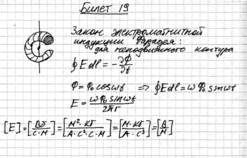 Билет 19
Закон электромагнитной
индукции Фарадея:
для неподвижного контура
∮Edl = -∂Φ/∂t
Φ = Φ₀cosωt ⇒ ∮Edl = ωΦ₀sinωt
E = ωΦ₀sinωt / 2πr
[E] = [Вб/с·м] = [м²·кг/А·с²·с·м] = [м·кг/А·с³] = [В/м]